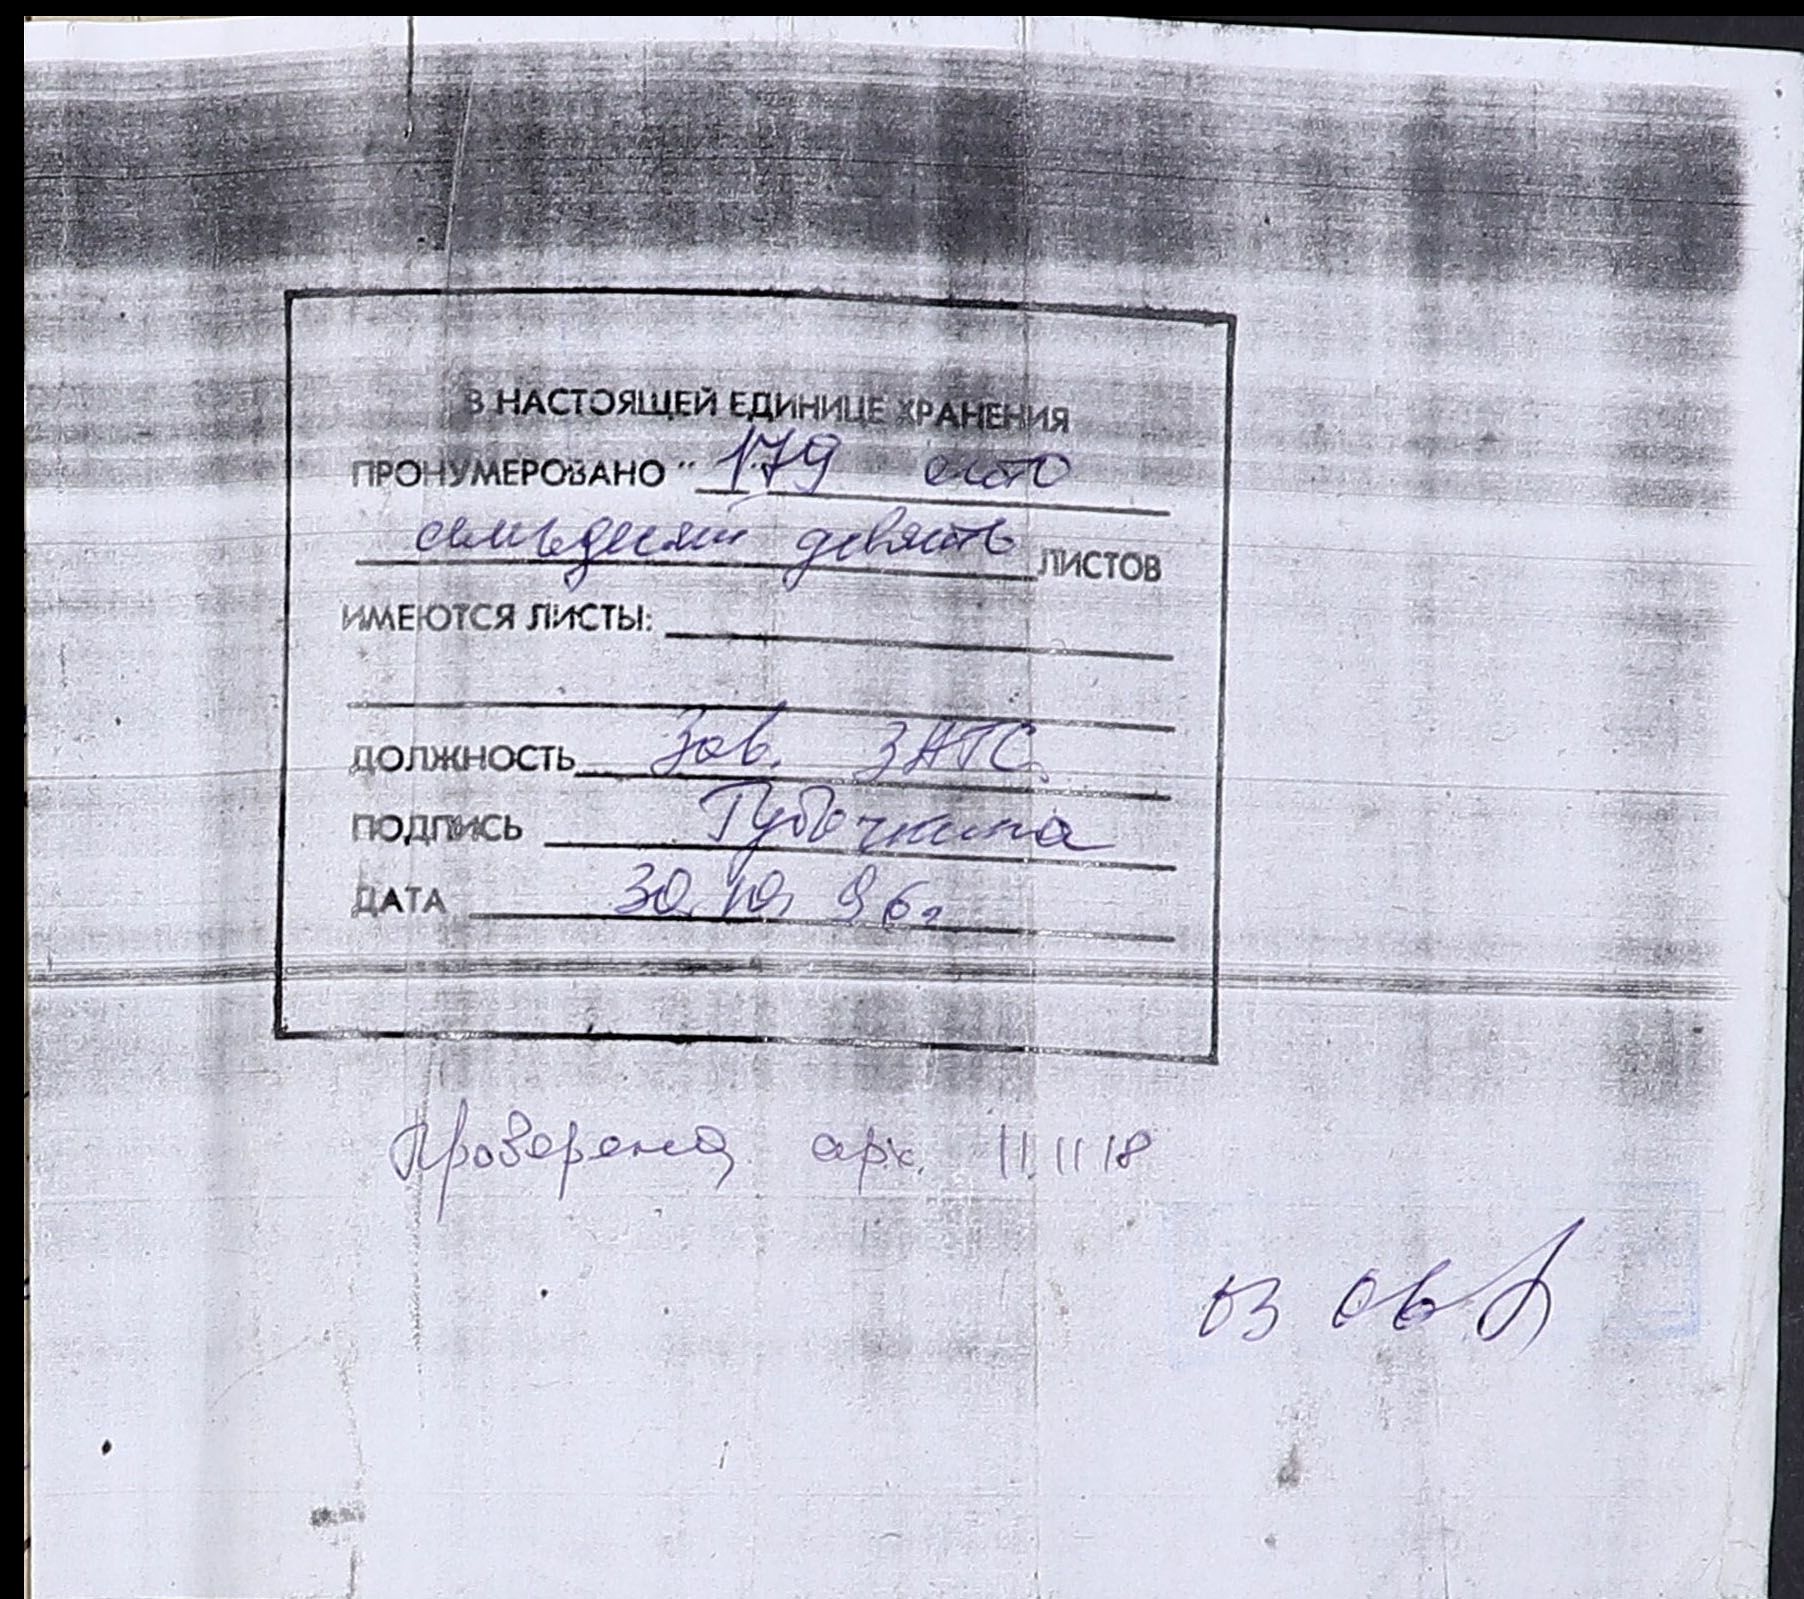 В НАСТОЯЩЕЙ ЕДИНИЦЕ ХРАНЕНИЯ
ПРОНУМЕРОВАНО " 179 сто
семьдесят девять ЛИСТОВ
ИМЕЮТСЯ ЛИСТЫ:
ДОЛЖНОСТЬ Зав. ЗАГС.
ПОДПИСЬ Губочкина
ДАТА 30.10.96г
Проверена арх. 11.11.18